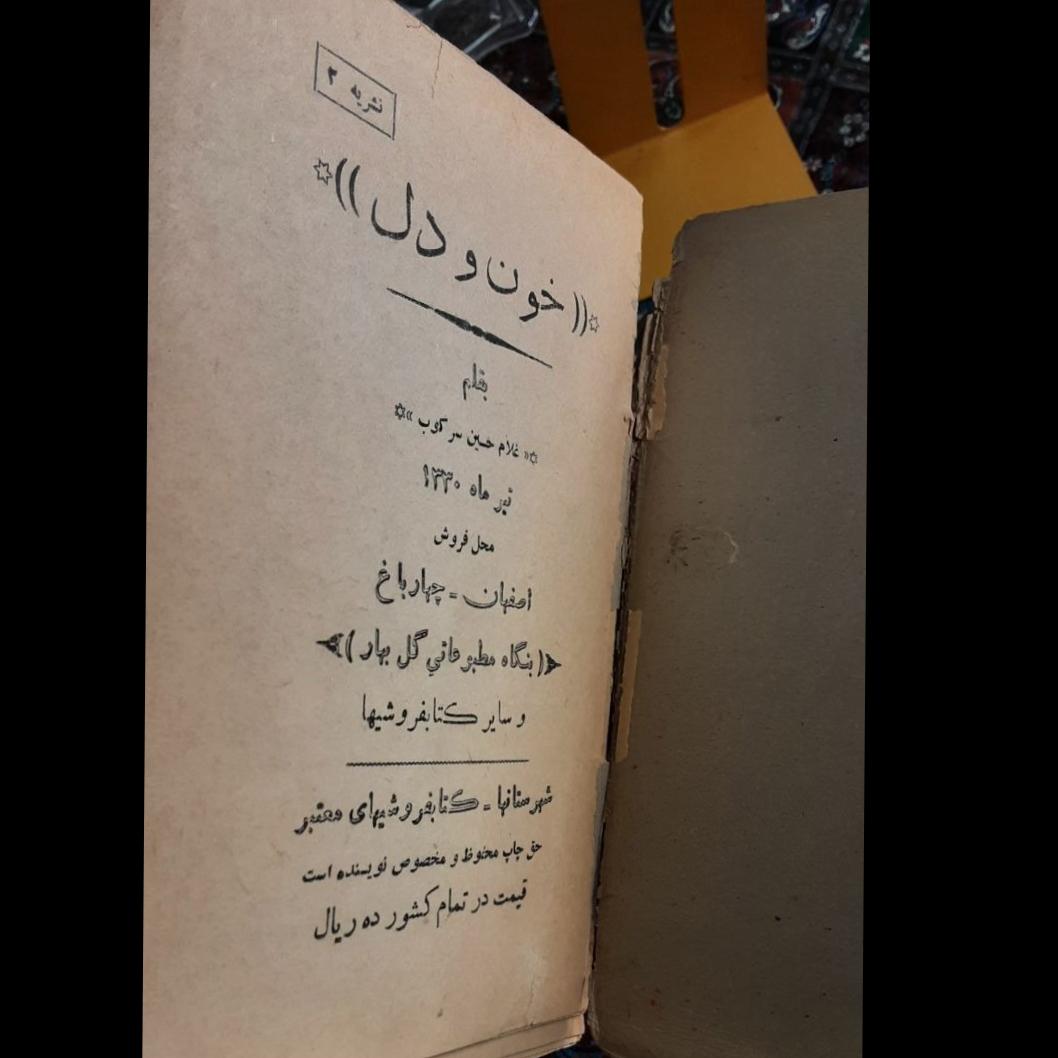 نشریه ۲
((خون و دل))
بقلم
«غلام حسین سر کوب»
تیر ماه ۱۳۳۰
محل فروش
اصفهان - چهار باغ
(بنگاه مطبوعاتي گل بهار)
و سایر کتابفروشیها
شهرستانها - کتابفروشیهای معتبر
حق چاپ محفوظ و مخصوص نویسنده است
قیمت در تمام کشور ده ریال